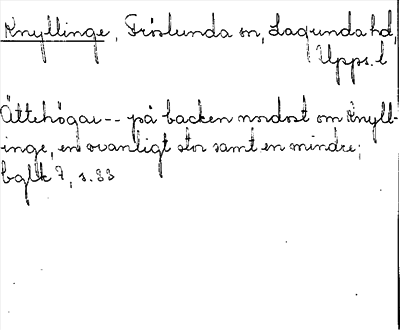 Knyllinge, Fröslunda sn, Lagunda hd,
Upps. l
Ättehögar -- på backen nordost om Knyll-
inge, en ovanligt stor samt en mindre;
bglk 7, s. 33